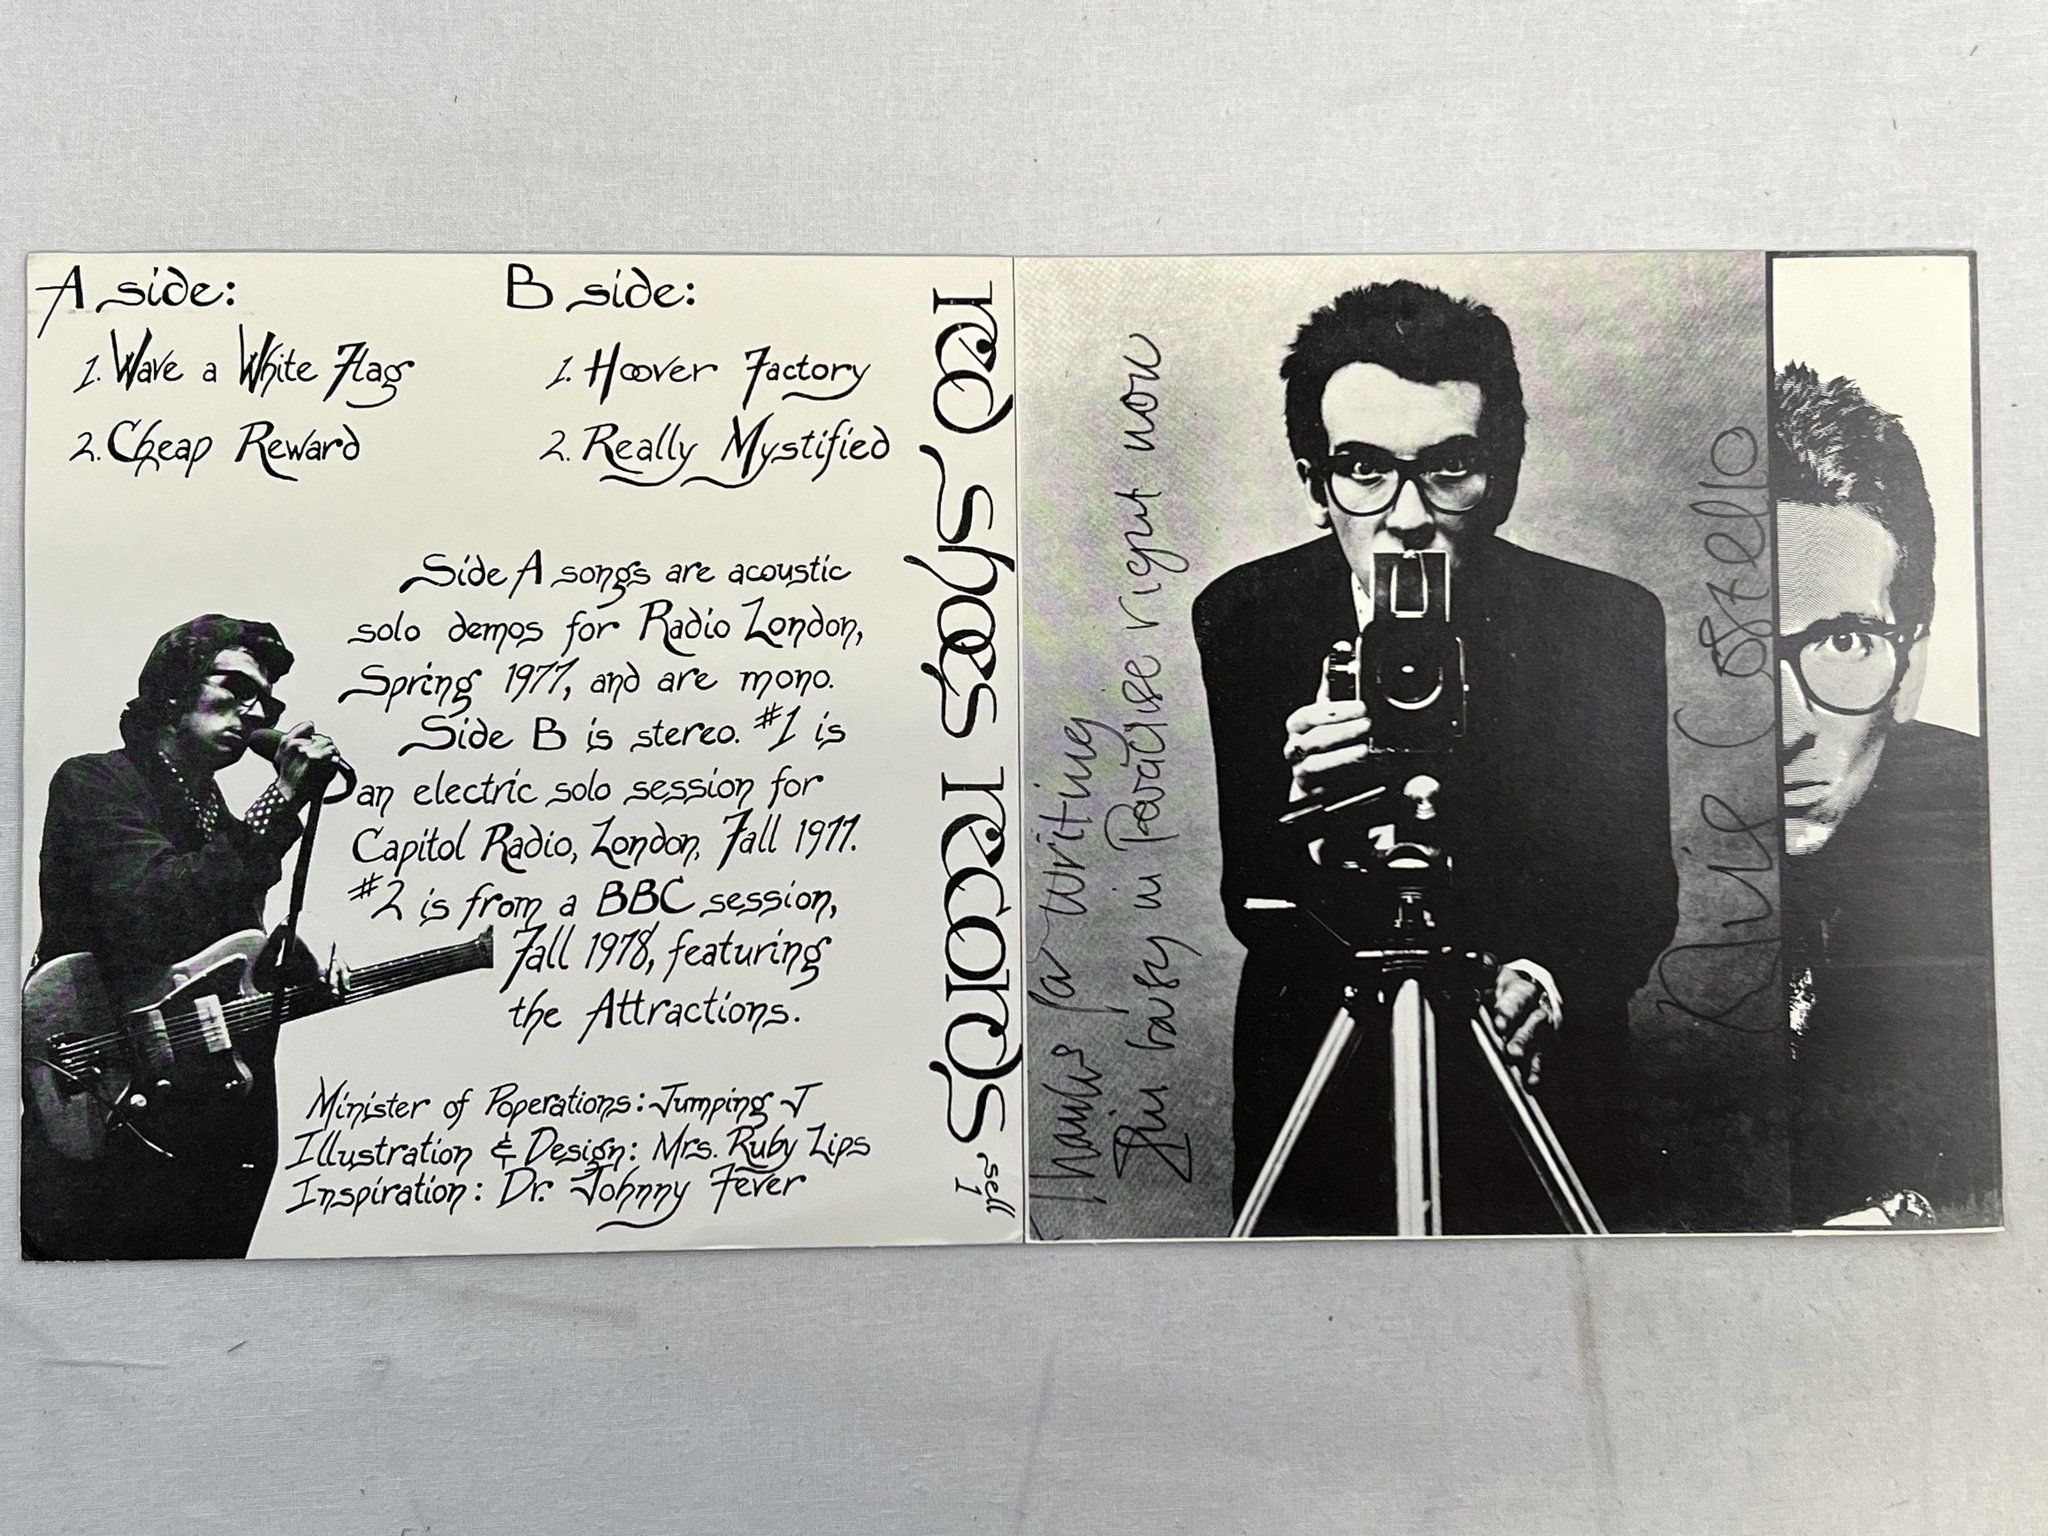 A side:
1. Wave a White Flag
2. Cheap Reward
B side:
1. Hoover Factory
2. Really Mystified
Side A songs are acoustic
solo demos for Radio London,
Spring 1977, and are mono.
Side B is stereo. #1 is
an electric solo session for
Capitol Radio, London, Fall 1977.
#2 is from a BBC session,
Fall 1978, featuring
the Attractions.
Minister of Poperations: Jumping J
Illustration & Design: Mrs. Ruby Lips
Inspiration: Dr. Johnny Fever
red shoes records
sell
1
Thanks for writing
I'm busy in Paradise right now
Elvis Costello